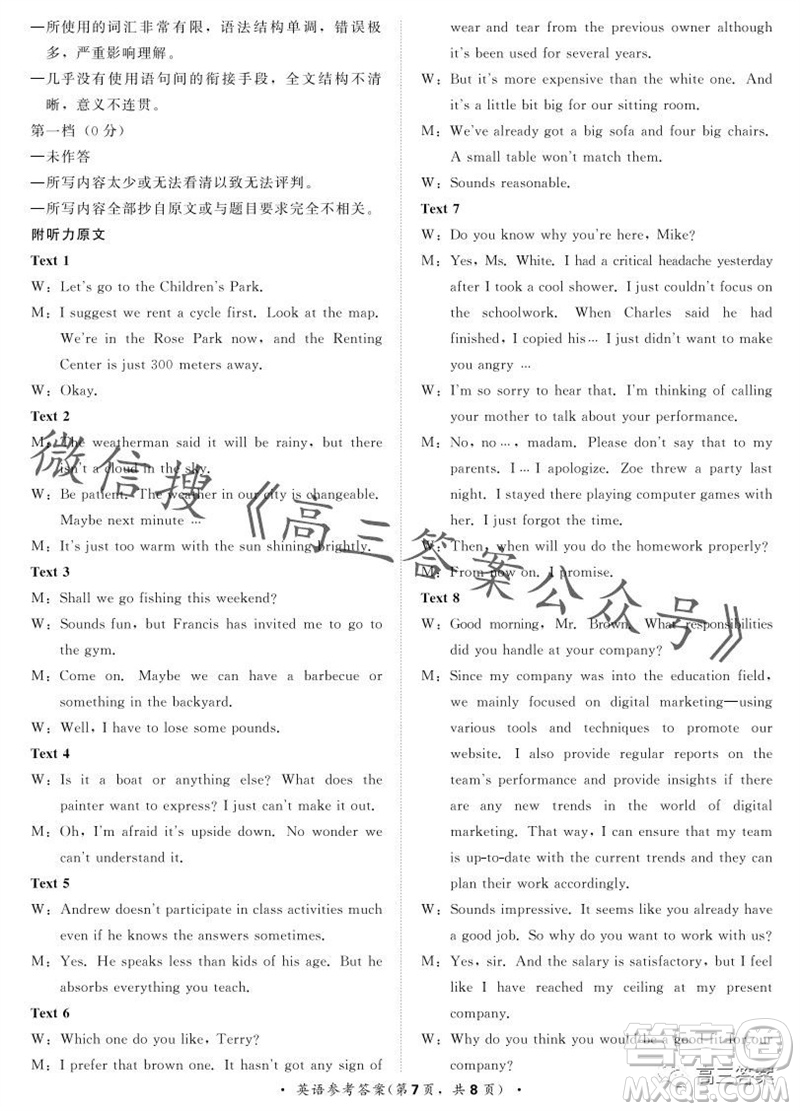 —所使用的词汇非常有限，语法结构单调，错误极
多，严重影响理解。
—几乎没有使用语句间的衔接手段，全文结构不清
晰，意义不连贯。
第一档（0 分）
—未作答
—所写内容太少或无法看清以致无法评判。
—所写内容全部抄自原文或与题目要求完全不相关。
附听力原文
Text 1
W: Let's go to the Children's Park.
M: I suggest we rent a cycle first. Look at the map.
We're in the Rose Park now, and the Renting
Center is just 300 meters away.
W: Okay.
Text 2
M: The weatherman said it will be rainy, but there
isn't a cloud in the sky.
W: Be patient. The weather in our city is changeable.
Maybe next minute …
M: It's just too warm with the sun shining brightly.
Text 3
M: Shall we go fishing this weekend?
W: Sounds fun, but Francis has invited me to go to
the gym.
M: Come on. Maybe we can have a barbecue or
something in the backyard.
W: Well, I have to lose some pounds.
Text 4
W: Is it a boat or anything else? What does the
painter want to express? I just can't make it out.
M: Oh, I'm afraid it's upside down. No wonder we
can't understand it.
Text 5
W: Andrew doesn't participate in class activities much
even if he knows the answers sometimes.
M: Yes. He speaks less than kids of his age. But he
absorbs everything you teach.
Text 6
W: Which one do you like, Terry?
M: I prefer that brown one. It hasn't got any sign of
wear and tear from the previous owner although
it's been used for several years.
W: But it's more expensive than the white one. And
it's a little bit big for our sitting room.
M: We've already got a big sofa and four big chairs.
A small table won't match them.
W: Sounds reasonable.
Text 7
W: Do you know why you're here, Mike?
M: Yes, Ms. White. I had a critical headache yesterday
after I took a cool shower. I just couldn't focus on
the schoolwork. When Charles said he had
finished, I copied his… I just didn't want to make
you angry …
W: I'm so sorry to hear that. I'm thinking of calling
your mother to talk about your performance.
M: No, no …, madam. Please don't do that to my
parents. I… I apologize. Zoe threw a party last
night. And I stayed playing computer games with
her. I just forgot the time.
W: Then, when will you do the homework properly?
M: From now on. I promise.
Text 8
W: Good morning, Mr. Brown. What responsibilities
did you handle at your company?
M: Since my company was into the education field,
we mainly focused on digital marketing—using
various tools and techniques to promote our
website. I also provide regular reports on the
team's performance and provide insights if there
are any new trends in the world of digital
marketing. That way, I can ensure that my team
is up-to-date with the current trends and they can
plan their work accordingly.
W: Sounds impressive. It seems like you already have
a good job. So why do you want to work with us?
M: Yes, sir. And the salary is satisfactory, but I feel
like I have reached my ceiling at my present
company.
W: Why do you think you would be a good fit for our
company?
• 英语参考答案（第 7 页，共 8 页）•
微信搜《高三答案公众号》
答案圈
MXQE.COM
高三答案